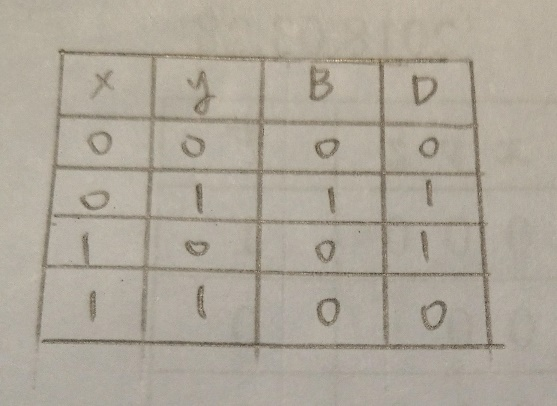 x y B D
0 0 0 0
0 1 1 1
1 0 0 1
1 1 0 0